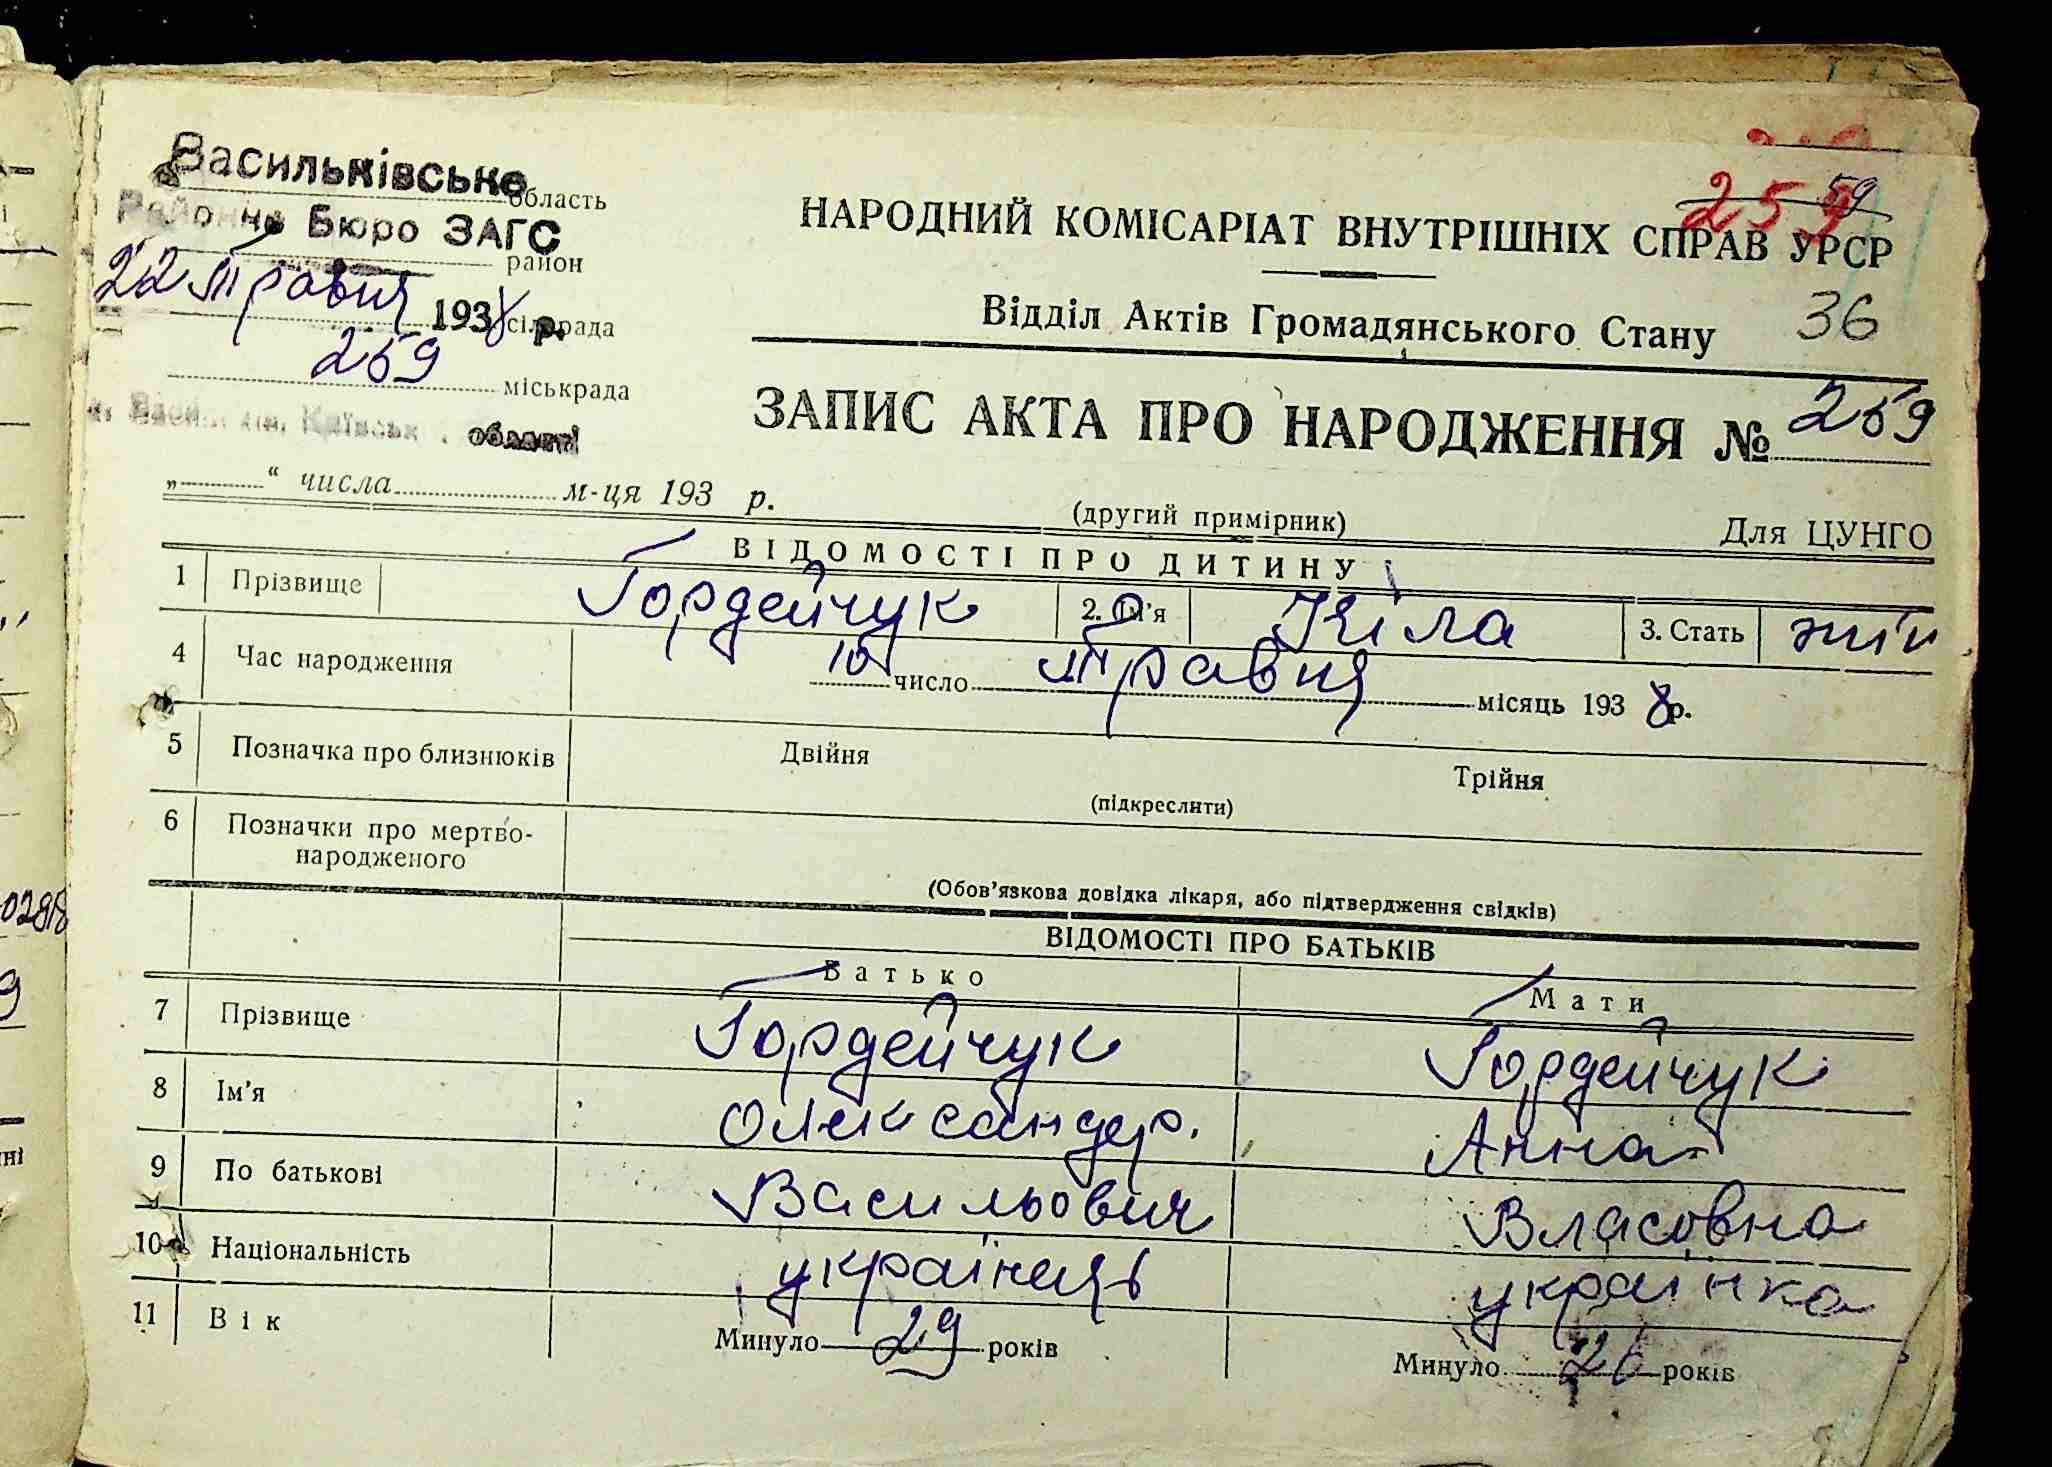 Васильківське
область
Районне Бюро ЗАГС
район
22 травня 1938 р.
сільрада
259
міськрада
м. Васильків, Київськ. області
„ “ числа м-ця 193 р.
259
59
НАРОДНИЙ КОМІСАРІАТ ВНУТРІШНІХ СПРАВ УРСР
Відділ Актів Громадянського Стану
36
ЗАПИС АКТА ПРО НАРОДЖЕННЯ № 259
(другий примірник)
Для ЦУНГО
ВІДОМОСТІ ПРО ДИТИНУ
1 Прізвище Гордейчук 2. Ім'я Ніла 3. Стать жін
4 Час народження 10 число травня місяць 1938 р.
5 Позначка про близнюків Двійня Трійня
(підкреслити)
6 Позначки про мертво-
народженого
(Обов'язкова довідка лікаря, або підтвердження свідків)
ВІДОМОСТІ ПРО БАТЬКІВ
Батько Мати
7 Прізвище Гордейчук Гордейчук
8 Ім'я Олександер. Анна
9 По батькові Васильович Власовна
10 Національність українець українка
11 Вік Минуло 29 років Минуло 26 років
0298
9
ні